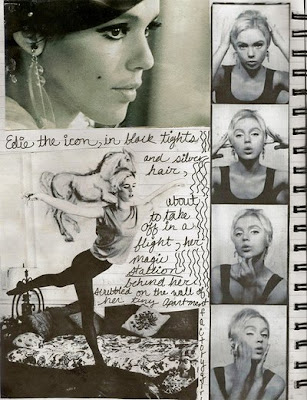 Edie the icon, in black tights
and silver
hair,
about
to take
off in a
flight, her
magic
stallion
behind her
scribbled on the wall of
her tiny apartment
factorygirl